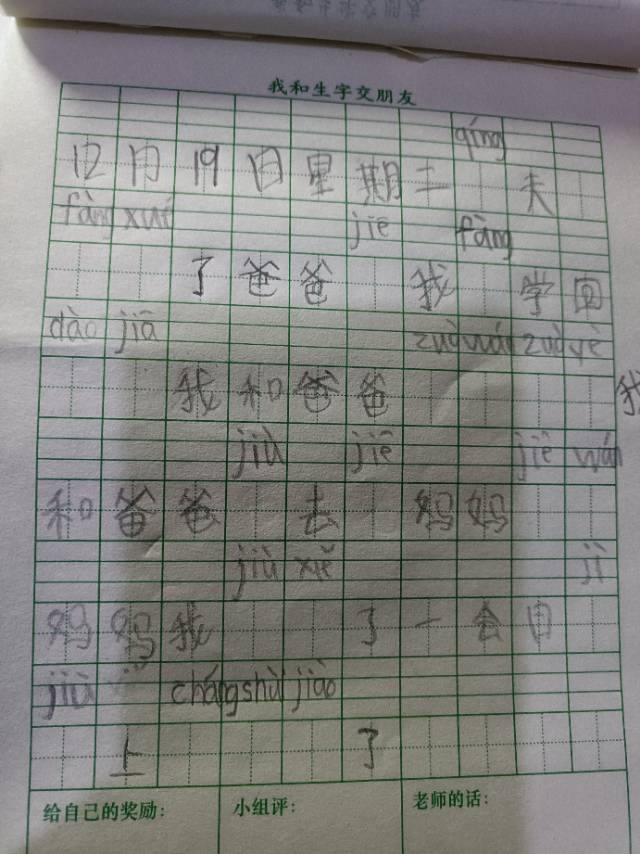 我和生字交朋友
qíng
12月19日星期二 天
fàng xué jiē fàng
了爸爸 我 学回
dào jiā zuò wán zuò yè
我和爸爸 我
jiù jiē jiē wán
和爸爸 去 妈妈
jiù xiě jì
妈妈我 了一会日
jiù cháng shù jiào
上 了
给自己的奖励: 小组评: 老师的话: